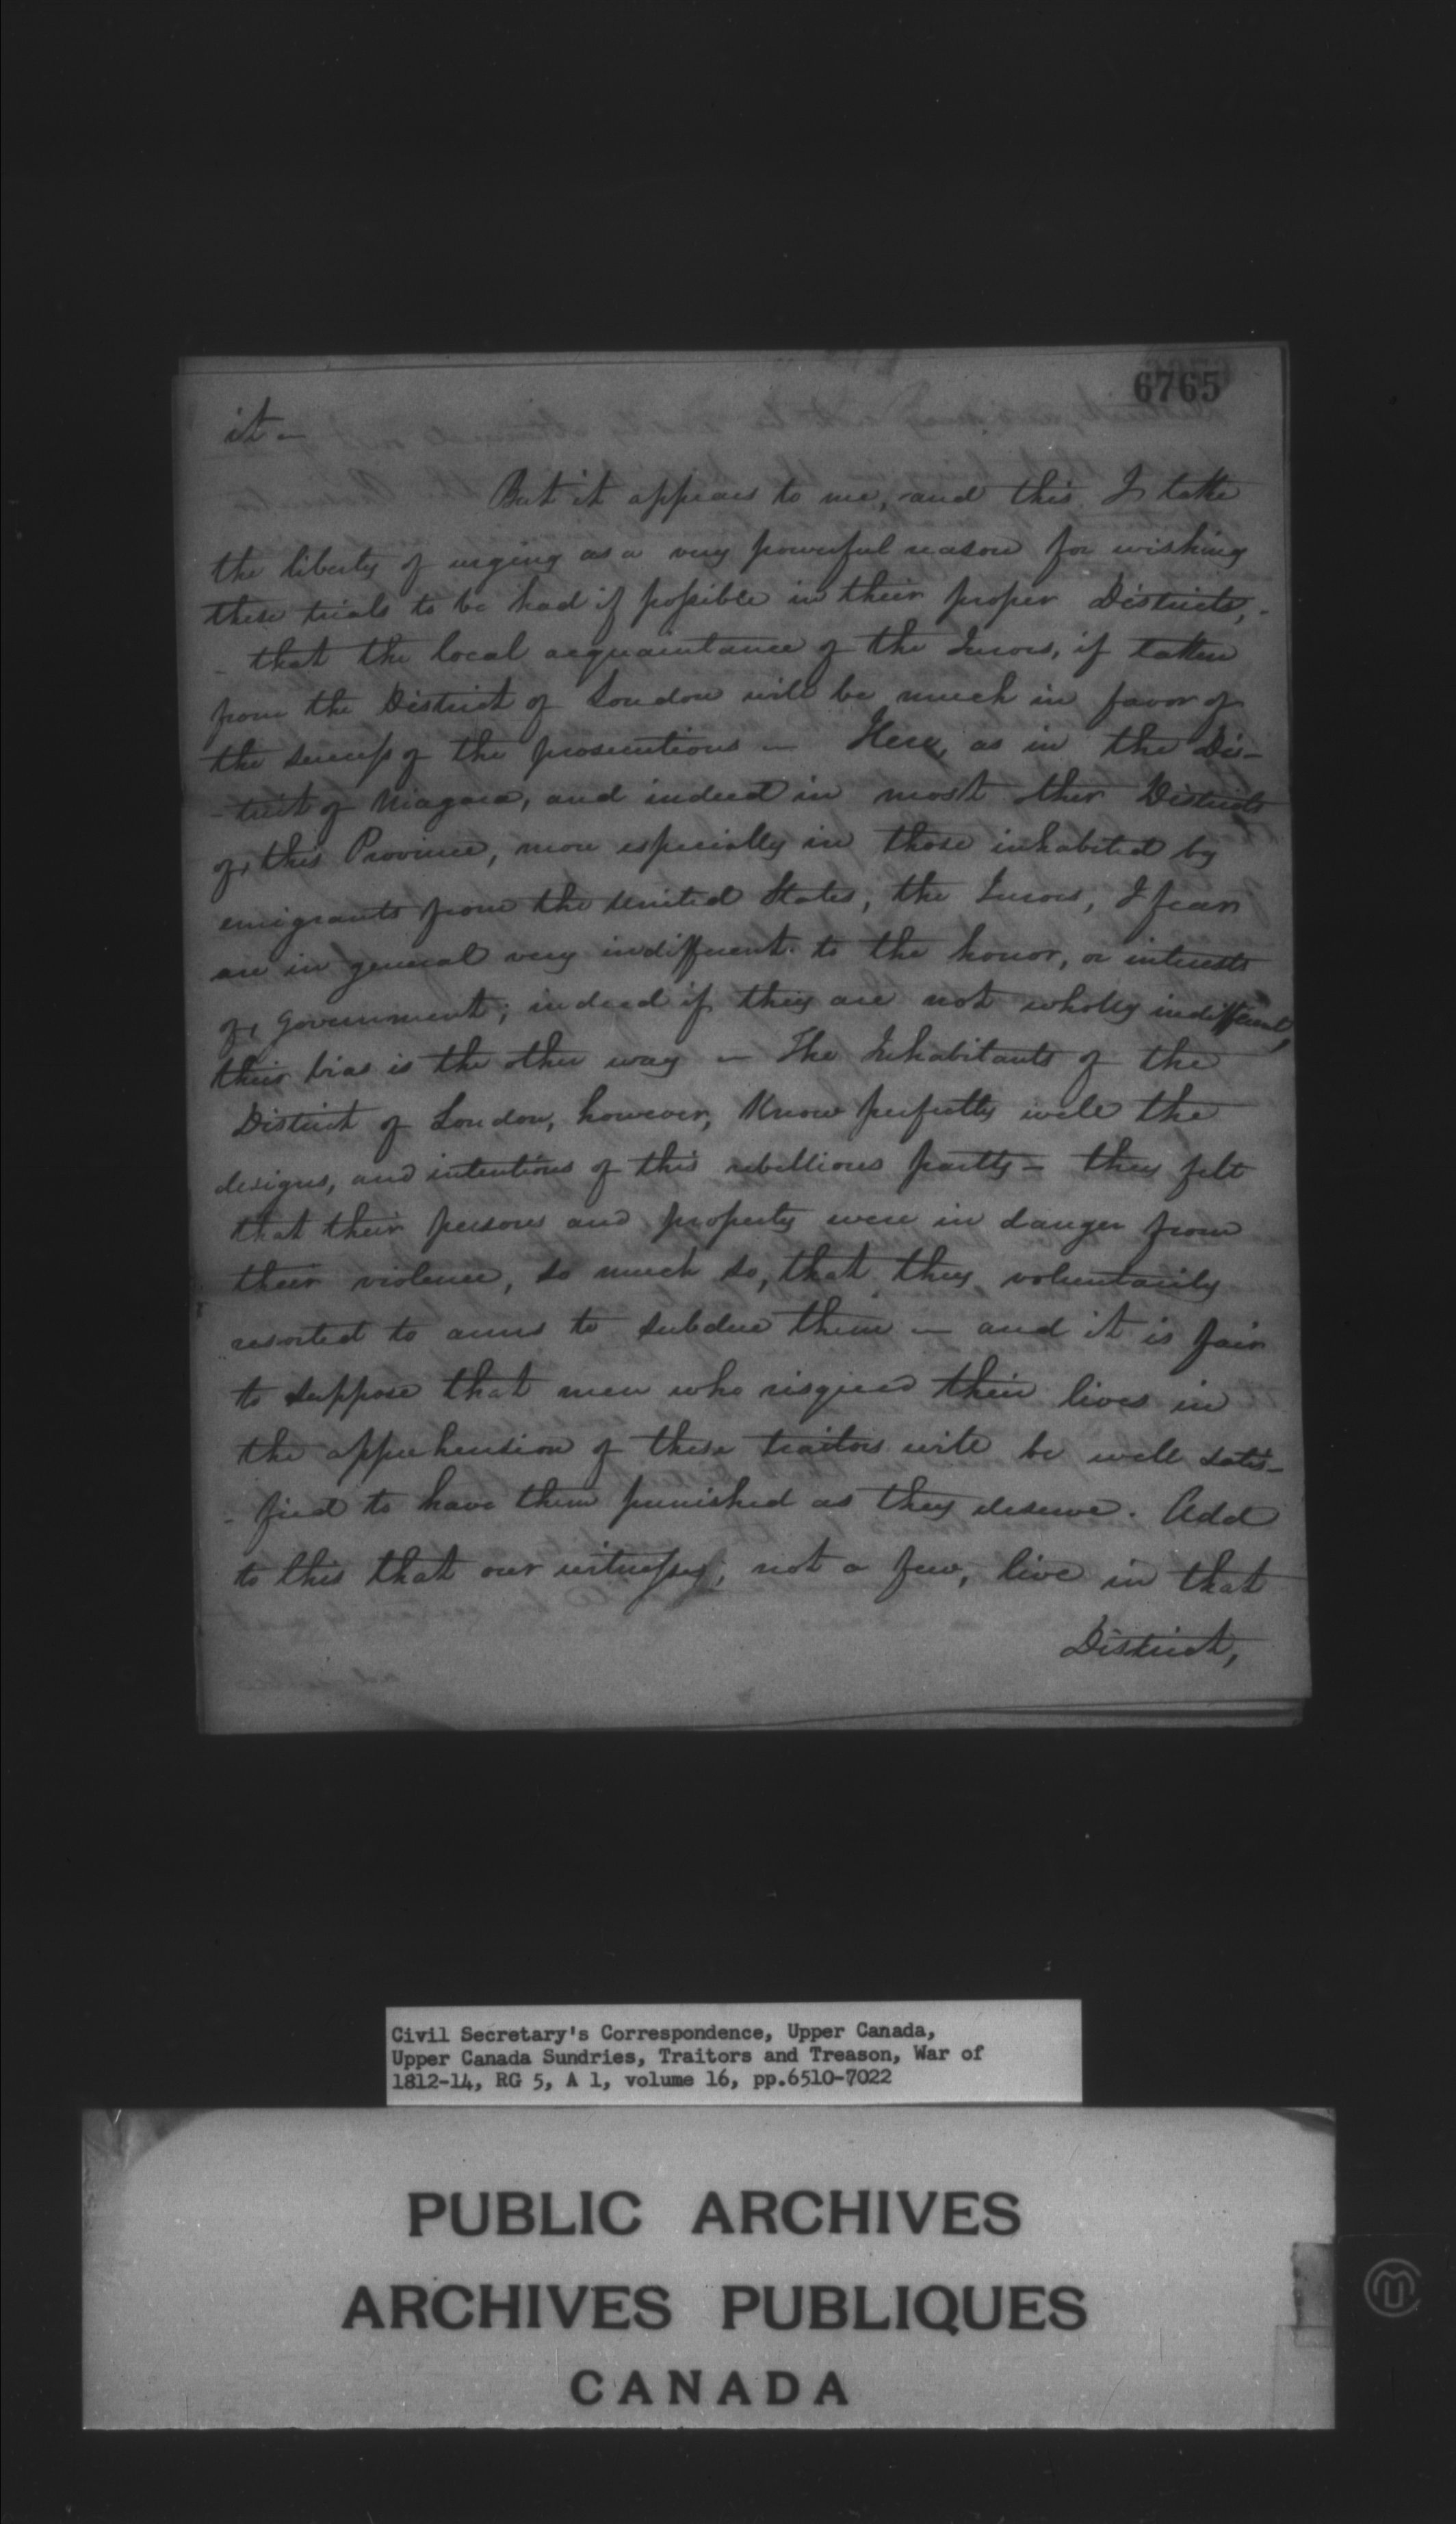 6765
it —
But it appears to me, and this I take
the liberty of urging as a very powerful reason for wishing
these trials to be had if possible in their proper Districts, -
- that the local acquaintance of the Jurors, if taken
from the District of London will be much in favor of
the success of the prosecutions — Here, as in the Dis-
- trict of Niagara, and indeed in most other Districts
of this Province, more especially in those inhabited by
emigrants from the United States, the Jurors, I fear
are in general very indifferent to the honor, or interests
of Government; indeed if they are not wholly indifferent,
their bias is the other way — The Inhabitants of the
District of London, however, Know perfectly well the
designs, and intentions of this rebellious party — they felt
that their persons and property were in danger from
their violence, so much so, that they voluntarily
resorted to arms to subdue them — and it is fair
to suppose that men who risqued their lives in
the apprehension of these traitors will be well satis-
- fied to have them punished as they deserve. Add
to this that our witnesses, not a few, live in that
District,
Civil Secretary's Correspondence, Upper Canada,
Upper Canada Sundries, Traitors and Treason, War of
1812-14, RG 5, A 1, volume 16, pp.6510-7022
PUBLIC ARCHIVES
ARCHIVES PUBLIQUES
CANADA